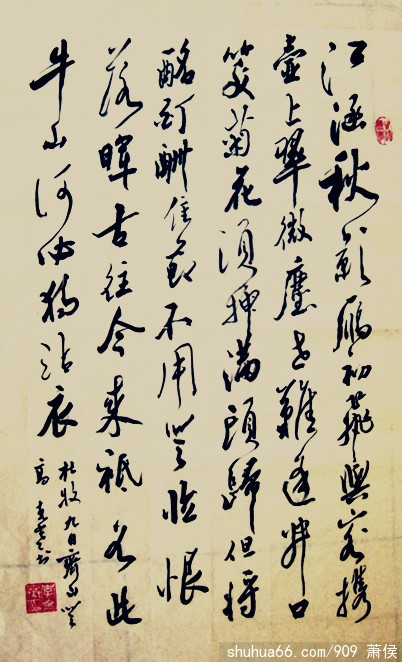 江涵秋影鴈初飛與客攜
壺上翠微塵世難逢開口
笑菊花須插滿頭歸但將
酩酊酬佳節不用登臨恨
落暉古往今來祗如此
牛山何必獨沾衣
杜牧九日齊山登
高
shuhua66.com/909 萧侯